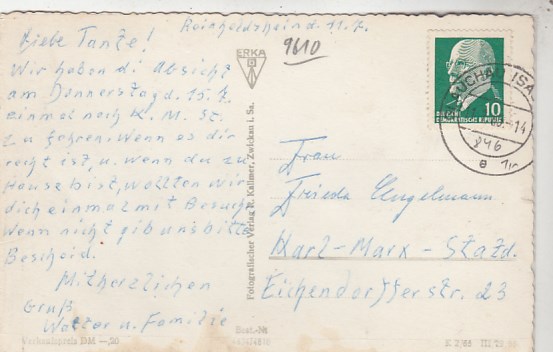 Reinholdshain d. 11.7.
9610
Liebe Tante!
Wir haben di Absicht
am Donnerstag d. 15.7.
einmal nach K. M. St.
zu fahren. Wenn es dir
recht ist, u. wenn du zu
Hause bist, wollten wir
dich einmal mit Besuch
wenn nicht gib uns bitte
Bescheid.
Mit herzlichen
Gruß
Walter u. Familie
Verkaufspreis DM —,20
ERKA
Fotografischer Verlag R. Kallmer, Zwickau i. Sa.
Best.-Nr.
10
DEUTSCHE
DEMOKRATISCHE REPUBLIK
-14
Frau
Frieda Engelmann
Karl-Marx-Stadt.
Eichendorfferstr. 23